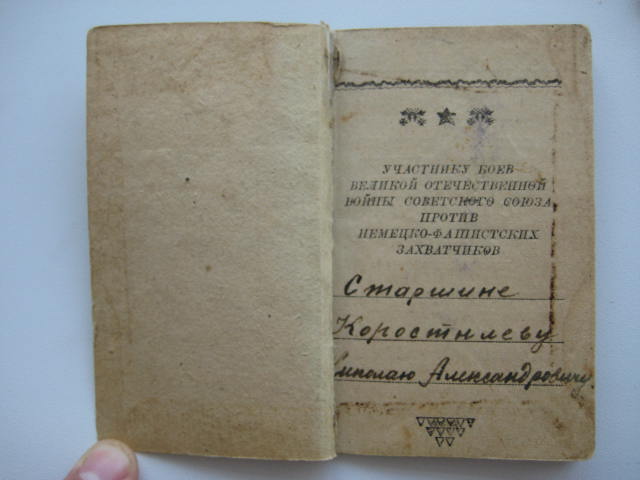 УЧАСТНИКУ БОЕВ
ВЕЛИКОЙ ОТЕЧЕСТВЕННОЙ
ВОЙНЫ СОВЕТСКОГО СОЮЗА
ПРОТИВ
НЕМЕЦКО-ФАШИСТСКИХ
ЗАХВАТЧИКОВ
Старшине
Коростылеву
Николаю Александровичу